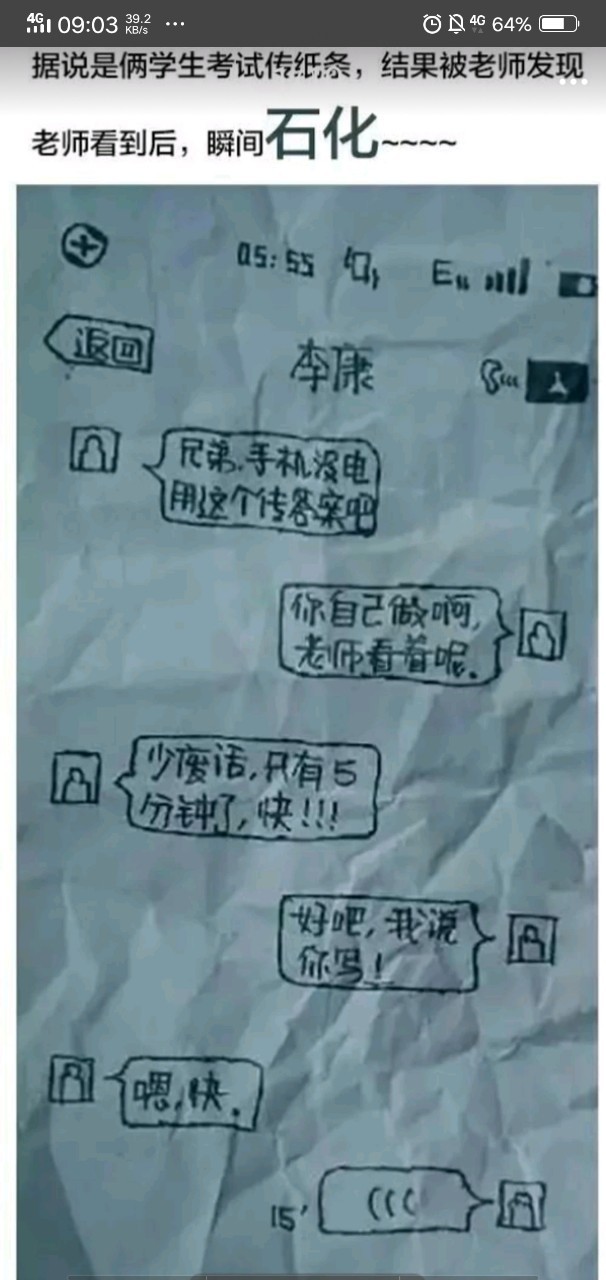 4G 09:03 39.2 KB/s ... 4G 64%
据说是俩学生考试传纸条，结果被老师发现
老师看到后，瞬间石化~~~~
05:55 E
返回 李康
兄弟，手机没电
用这个传答案吧
你自己做啊，
老师看着呢。
少废话，只有5
分钟了，快!!!
好吧，我说
你写！
嗯，快。
15'